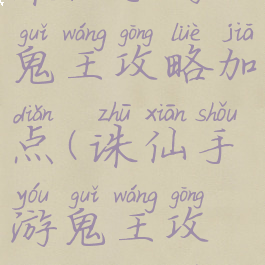 guǐ wáng gōng lüè jiā
鬼王攻略加
diǎn zhū xiān shǒu
点(诛仙手
yóu guǐ wáng gōng
游鬼王攻